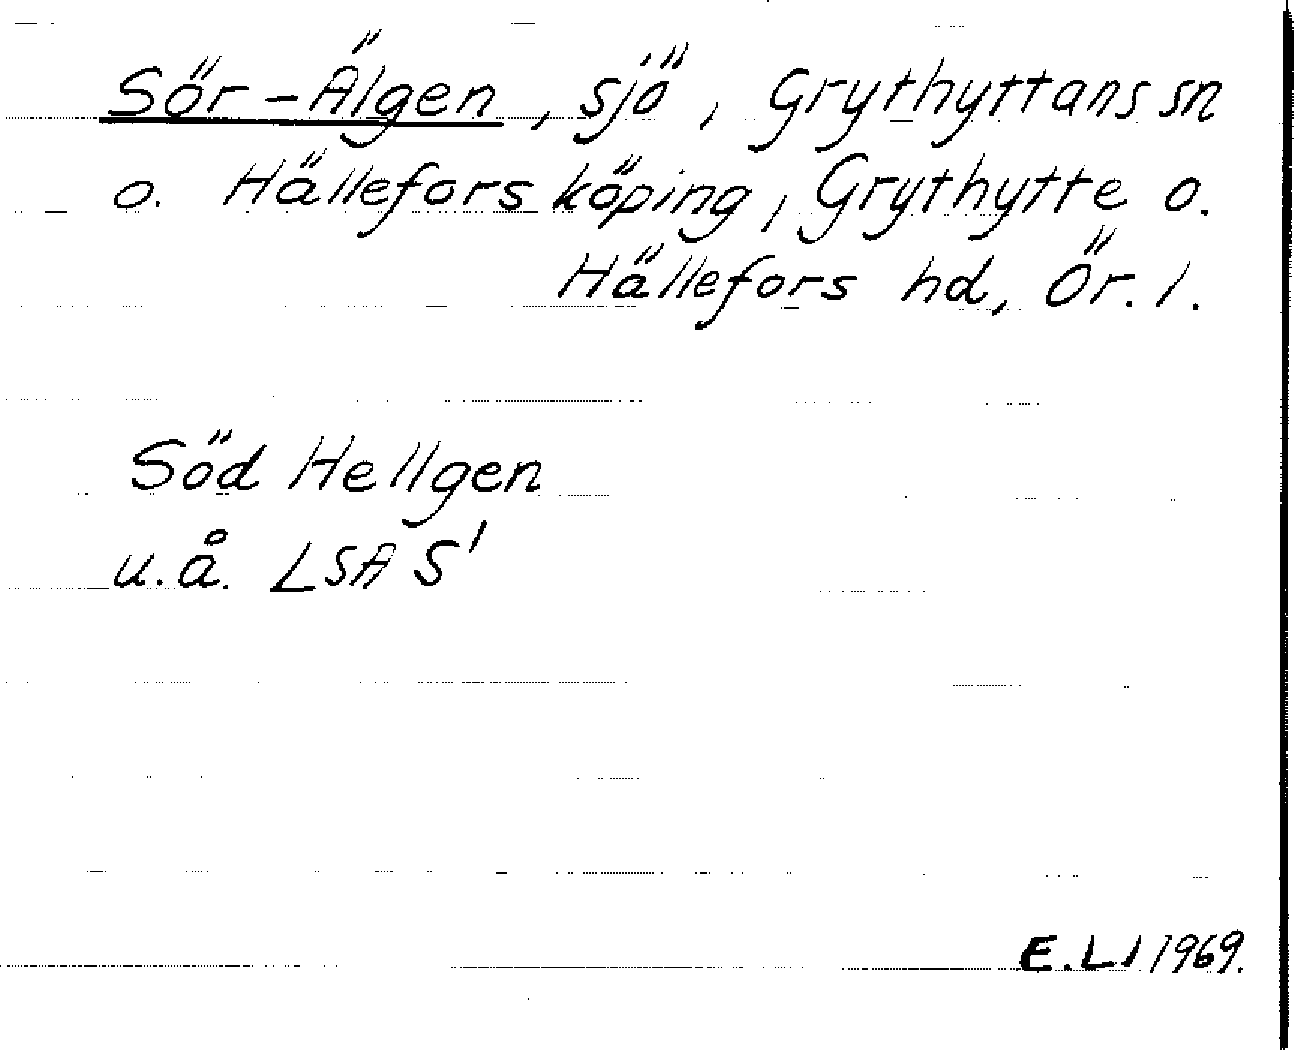 Sör-Älgen, sjö, Grythyttans sn
o. Hällefors köping, Grythytte o.
Hällefors hd, Ör. l.
Söd Hellgen
u.å. LSA S'
E.LJ 1969.